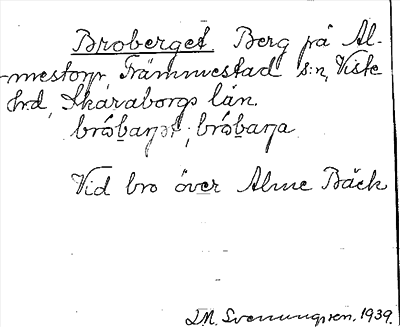 Broberget. Berg på Al-
mestorp, Främmestad s:n, Viste
hrd, Skaraborgs län.
Vid bro över Alme Bäck
S.M. Svenungsson. 1939.